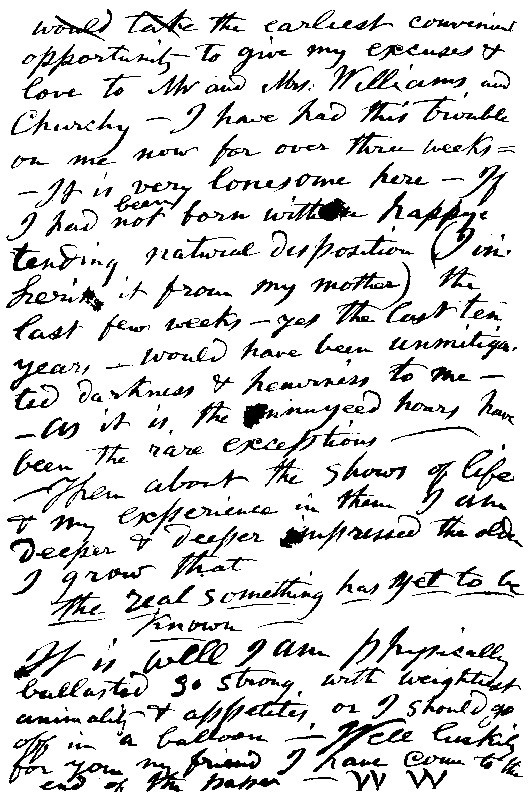 would take the earliest convenient
opportunity to give my excuses &
love to Mr and Mrs. Williams, and
Churchy — I have had this trouble
on me now for over three weeks =
— It is very lonesome here — If
been
I had not born with a happy
tending natural disposition (I in-
herit it from my mother) the
last few weeks — yes the last ten
years — would have been unmitiga-
ted darkness & heaviness to me —
— as it is, the ennuyeed hours have
been the rare exceptions —
— Then about the shows of life
& my experience in them I am
deeper & deeper impressed the older
I grow that
the real something has yet to be
known
It is well I am physically
ballasted so strong with weightiest
animality & appetites or I should go
off in a balloon — Well luckily
for you my friend I have come to the
end of the paper — W W